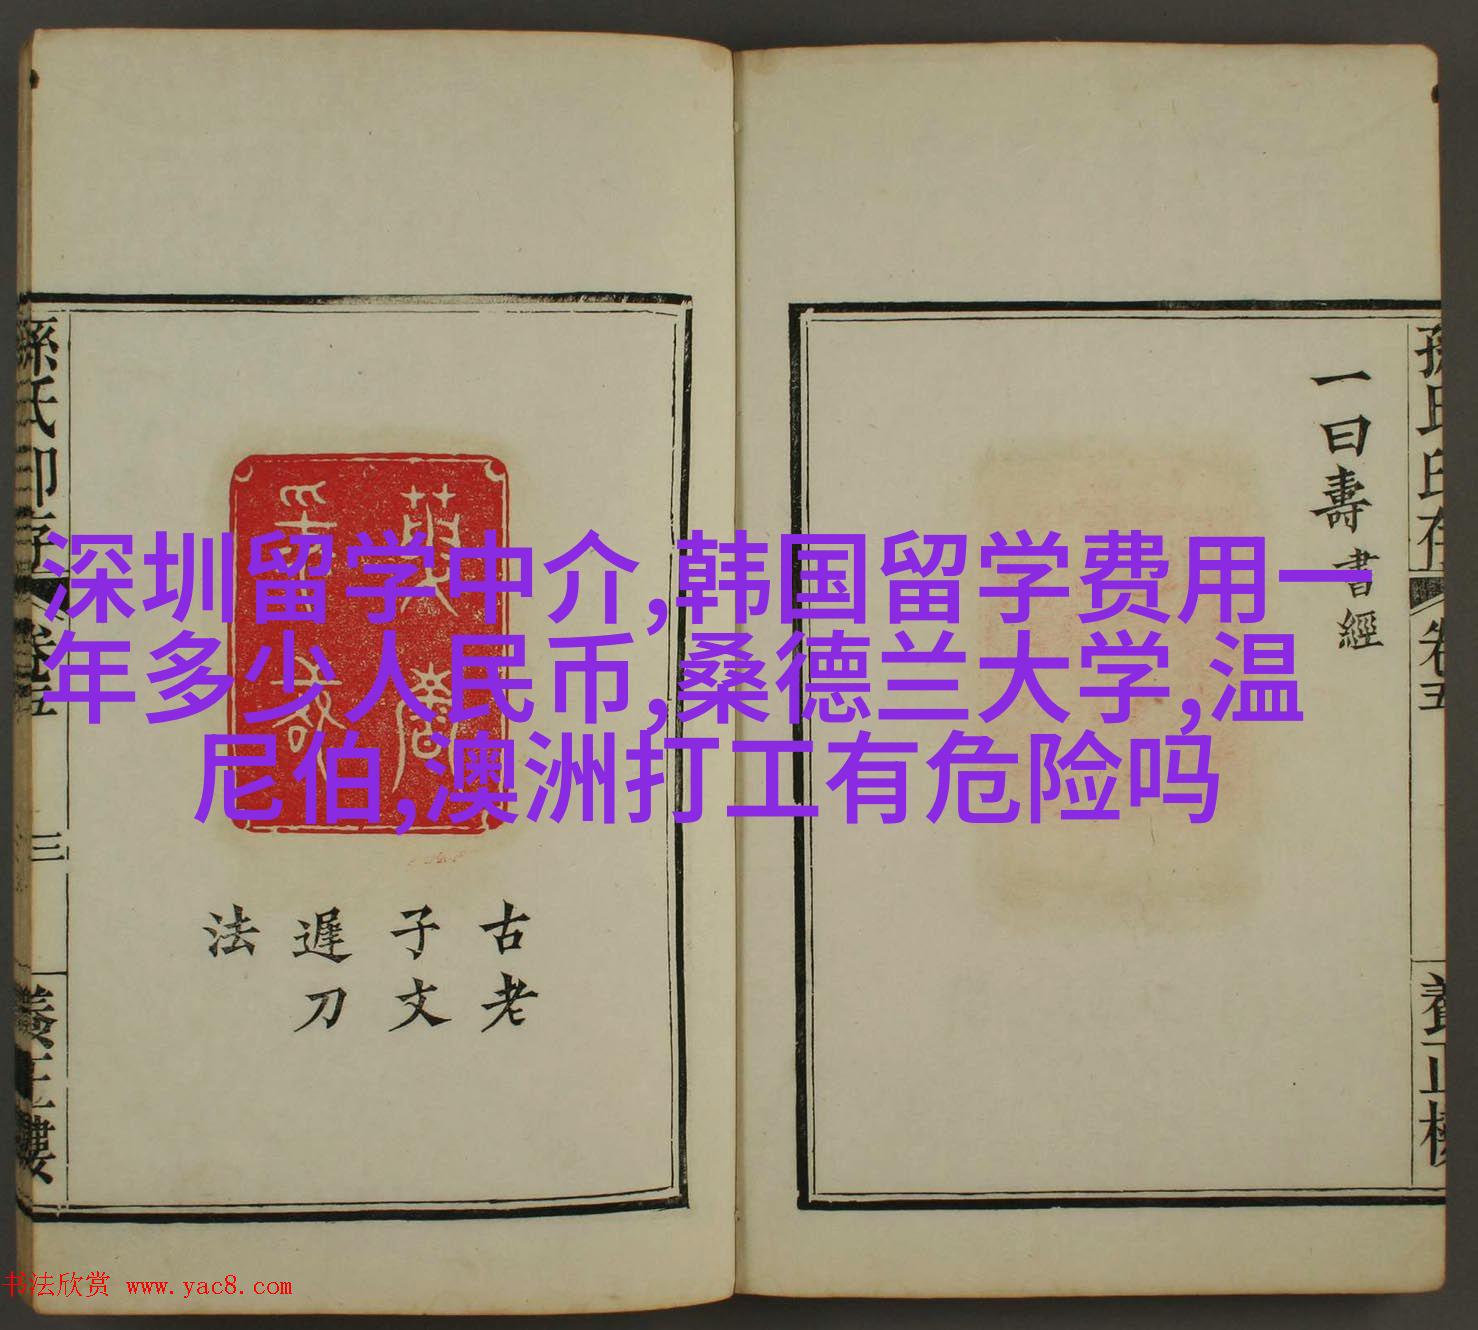 深圳留学中介,韩国留学费用一
年多少人民币,桑德兰大学,温
尼伯,澳洲打工有危险吗
一曰壽書經
古老
子文
遲刀
法
卷五
三
養正樓
书法欣赏 www.yac8.com